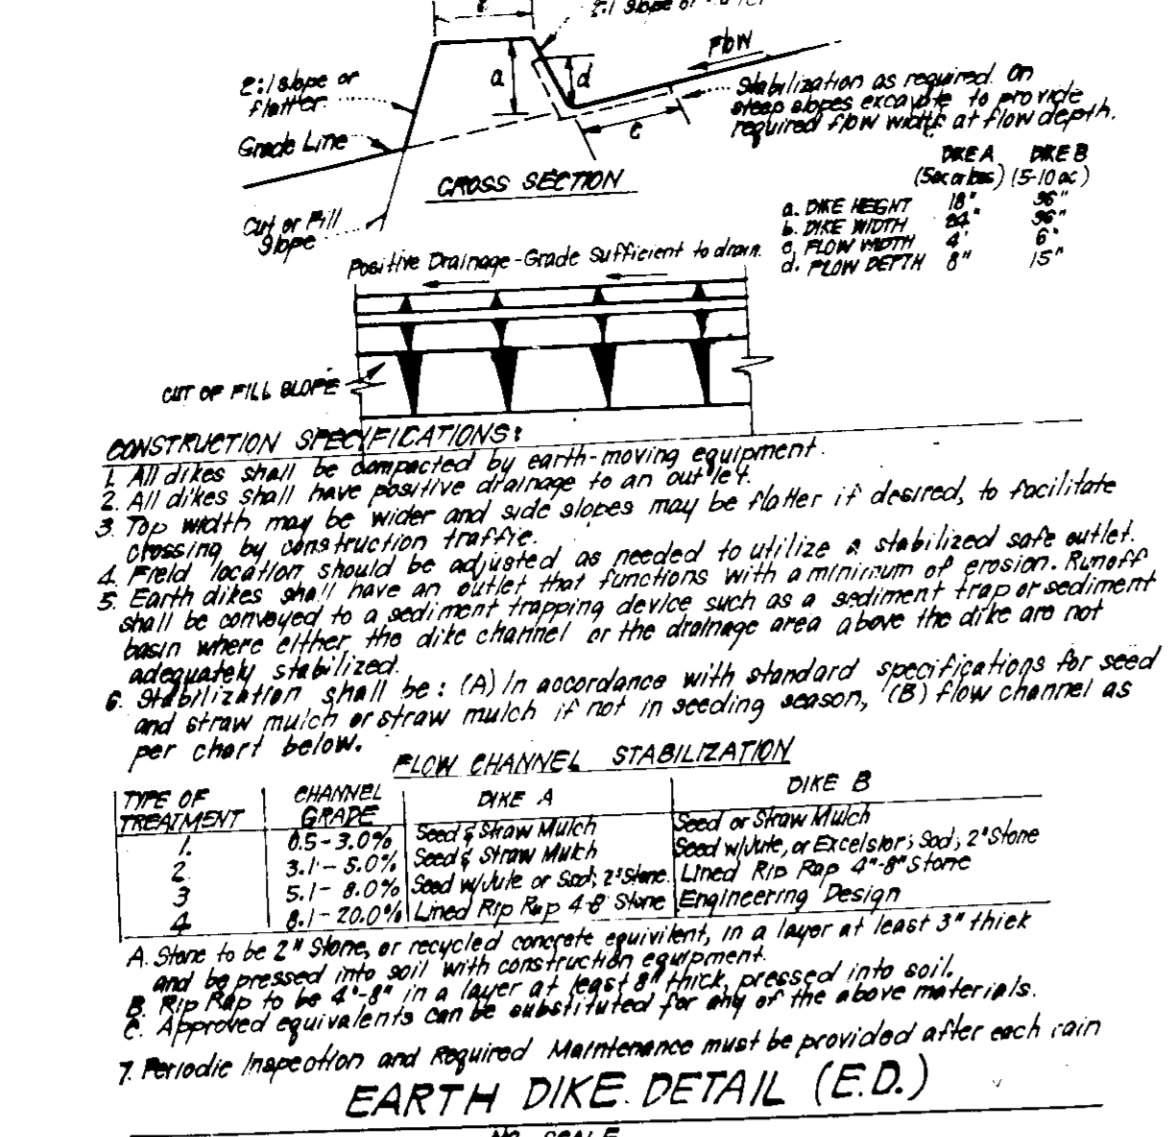 2:1 slope or
Flow
2:1 slope or
flatter
a
d
Stabilization as required. On
steep slopes excavate to provide
required flow width at flow depth.
Grade Line
c
CROSS SECTION
Cut or Fill
Slope
DIKE A DIKE B
(5ac or less) (5-10 ac)
a. DIKE HEIGHT 18" 36"
b. DIKE WIDTH 24" 36"
c. FLOW WIDTH 4' 6'
d. FLOW DEPTH 8" 15"
Positive Drainage-Grade Sufficient to drain.
CUT OF FILL SLOPE
CONSTRUCTION SPECIFICATIONS:
1. All dikes shall be compacted by earth-moving equipment.
2. All dikes shall have positive drainage to an outlet.
3. Top width may be wider and side slopes may be flatter if desired, to facilitate
crossing by construction traffic.
4. Field location should be adjusted as needed to utilize a stabilized safe outlet.
5. Earth dikes shall have an outlet that functions with a minimum of erosion. Runoff
shall be conveyed to a sediment trapping device such as a sediment trap or sediment
basin where either the dike channel or the drainage area above the dike are not
adequately stabilized.
6. Stabilization shall be: (A) In accordance with standard specifications for seed
and straw mulch or straw mulch if not in seeding season, (B) flow channel as
per chart below.
FLOW CHANNEL STABILIZATION
TYPE OF TREATMENT CHANNEL GRADE DIKE A DIKE B
1. 0.5-3.0% Seed & Straw Mulch Seed or Straw Mulch
2 3.1-5.0% Seed & Straw Mulch Seed w/Jute, or Excelsior; Sod; 2" Stone
3 5.1-8.0% Seed w/Jute or Sod; 2" Stone Lined Rip Rap 4"-8" Stone
4 8.1-20.0% Lined Rip Rap 4-8" Stone Engineering Design
A. Stone to be 2" Stone, or recycled concrete equivilent, in a layer at least 3" thick
and be pressed into soil with construction equipment.
B. Rip Rap to be 4"-8" in a layer at least 8" thick, pressed into soil.
C. Approved equivalents can be substituted for any of the above materials.
7. Periodic Inspection and Required Maintenance must be provided after each rain
EARTH DIKE DETAIL (E.D.)